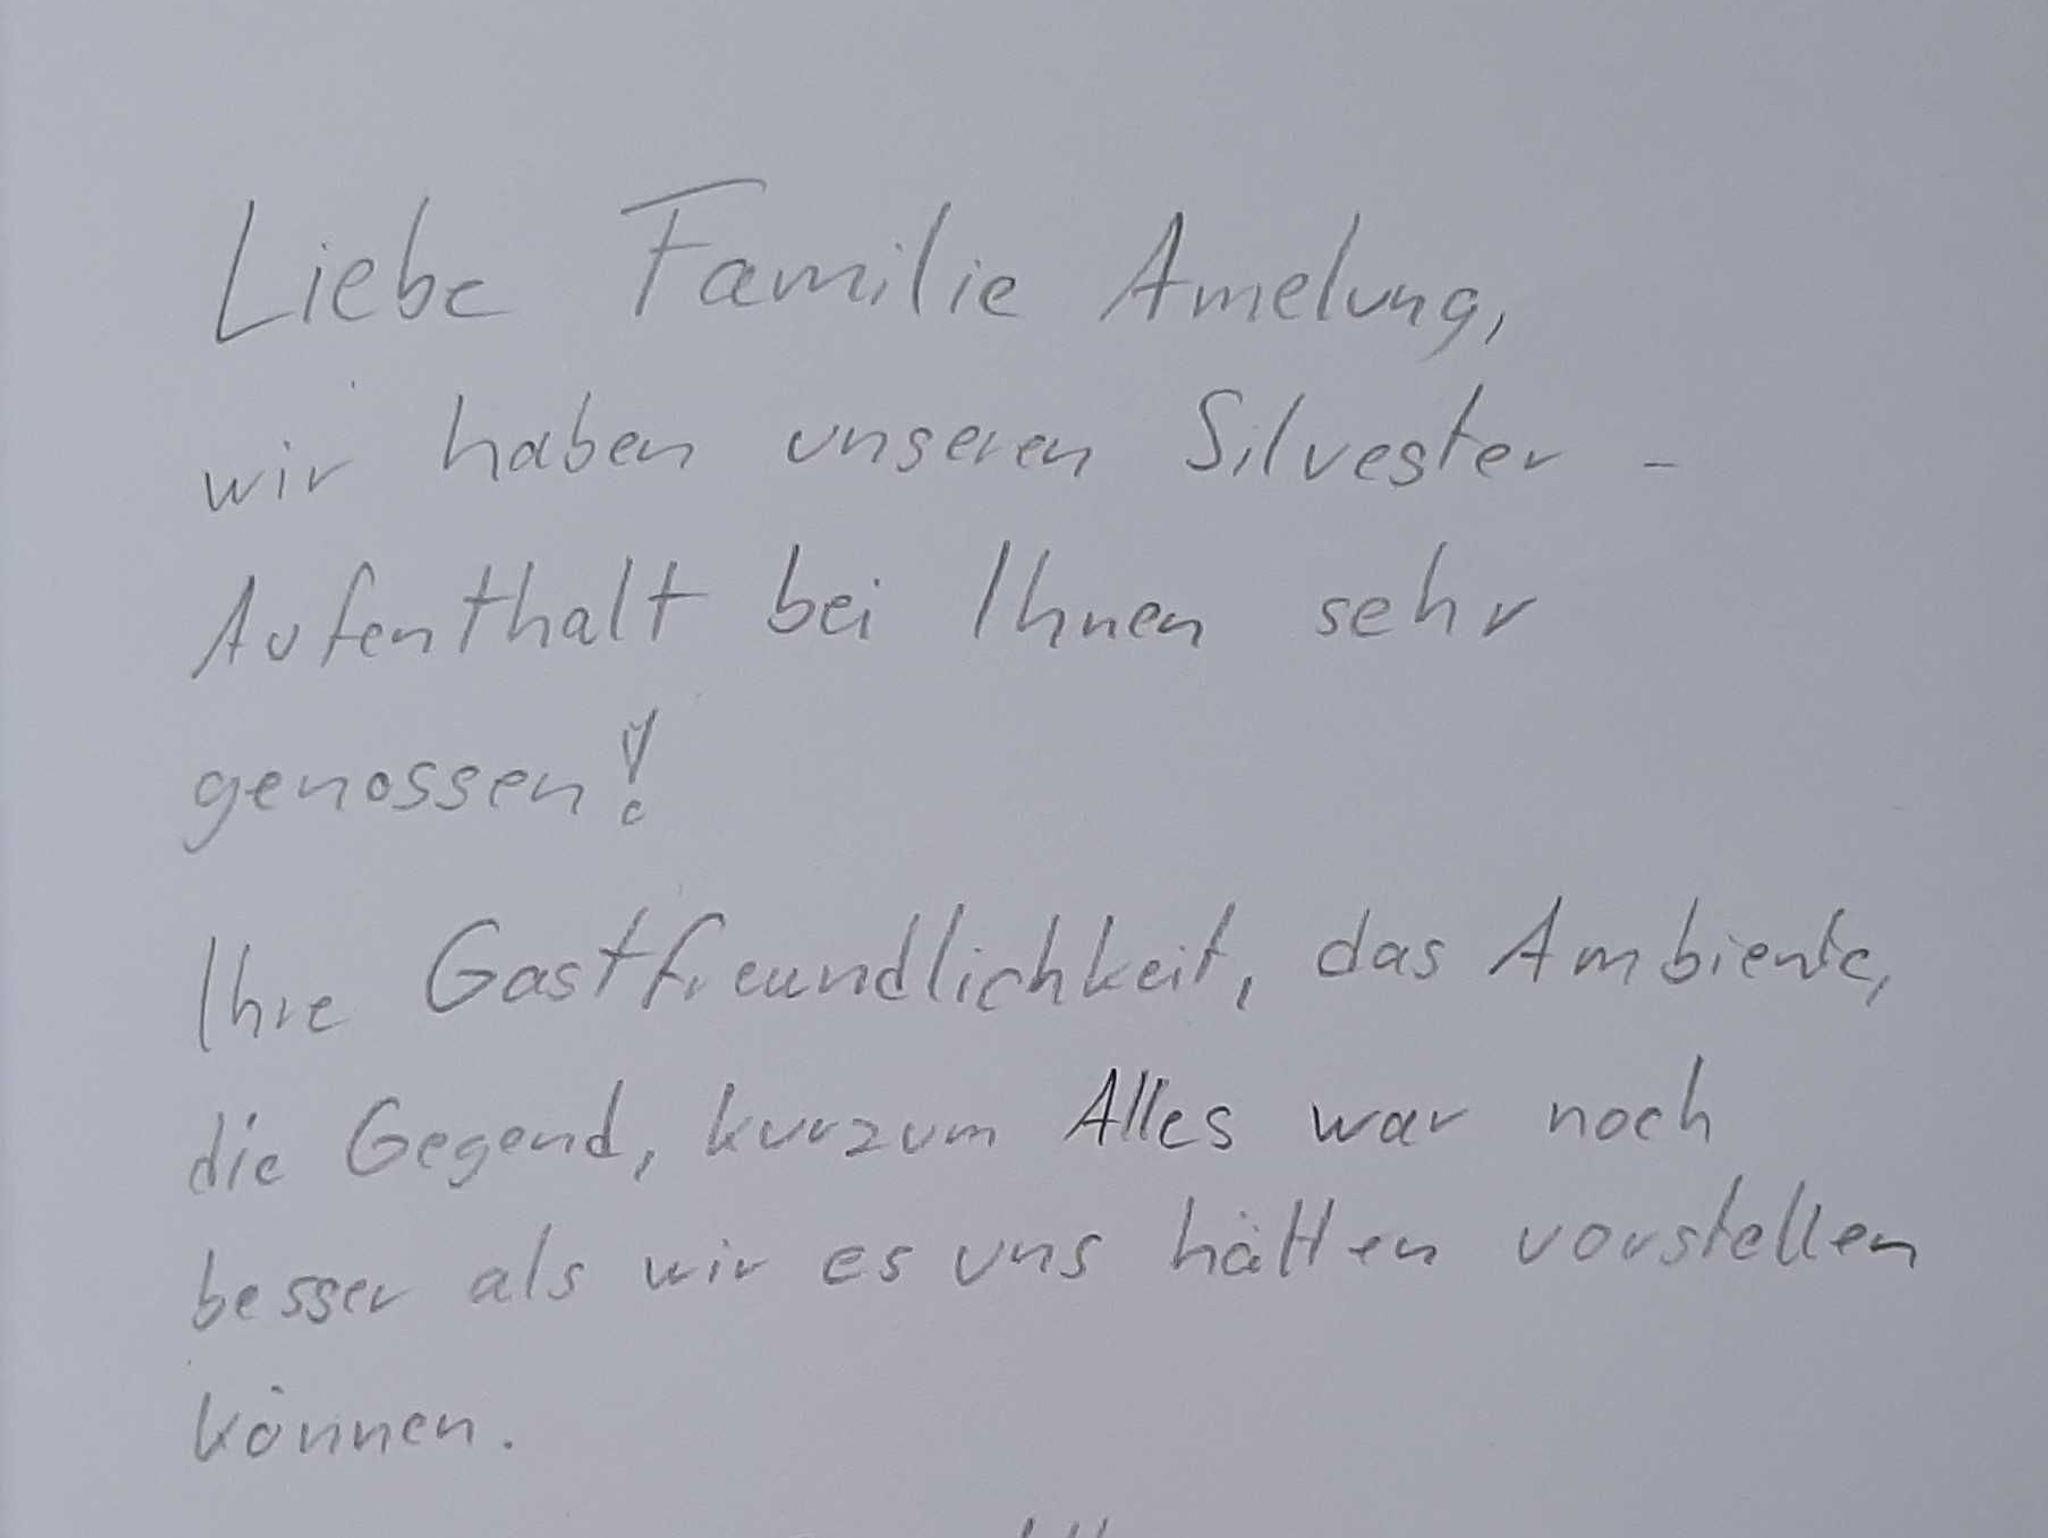 Liebe Familie Amelung,
wir haben unseren Silvester -
Aufenthalt bei Ihnen sehr
genossen!
Ihre Gastfreundlichkeit, das Ambiente,
die Gegend, kurzum Alles war noch
besser als wir es uns hätten vorstellen
können.